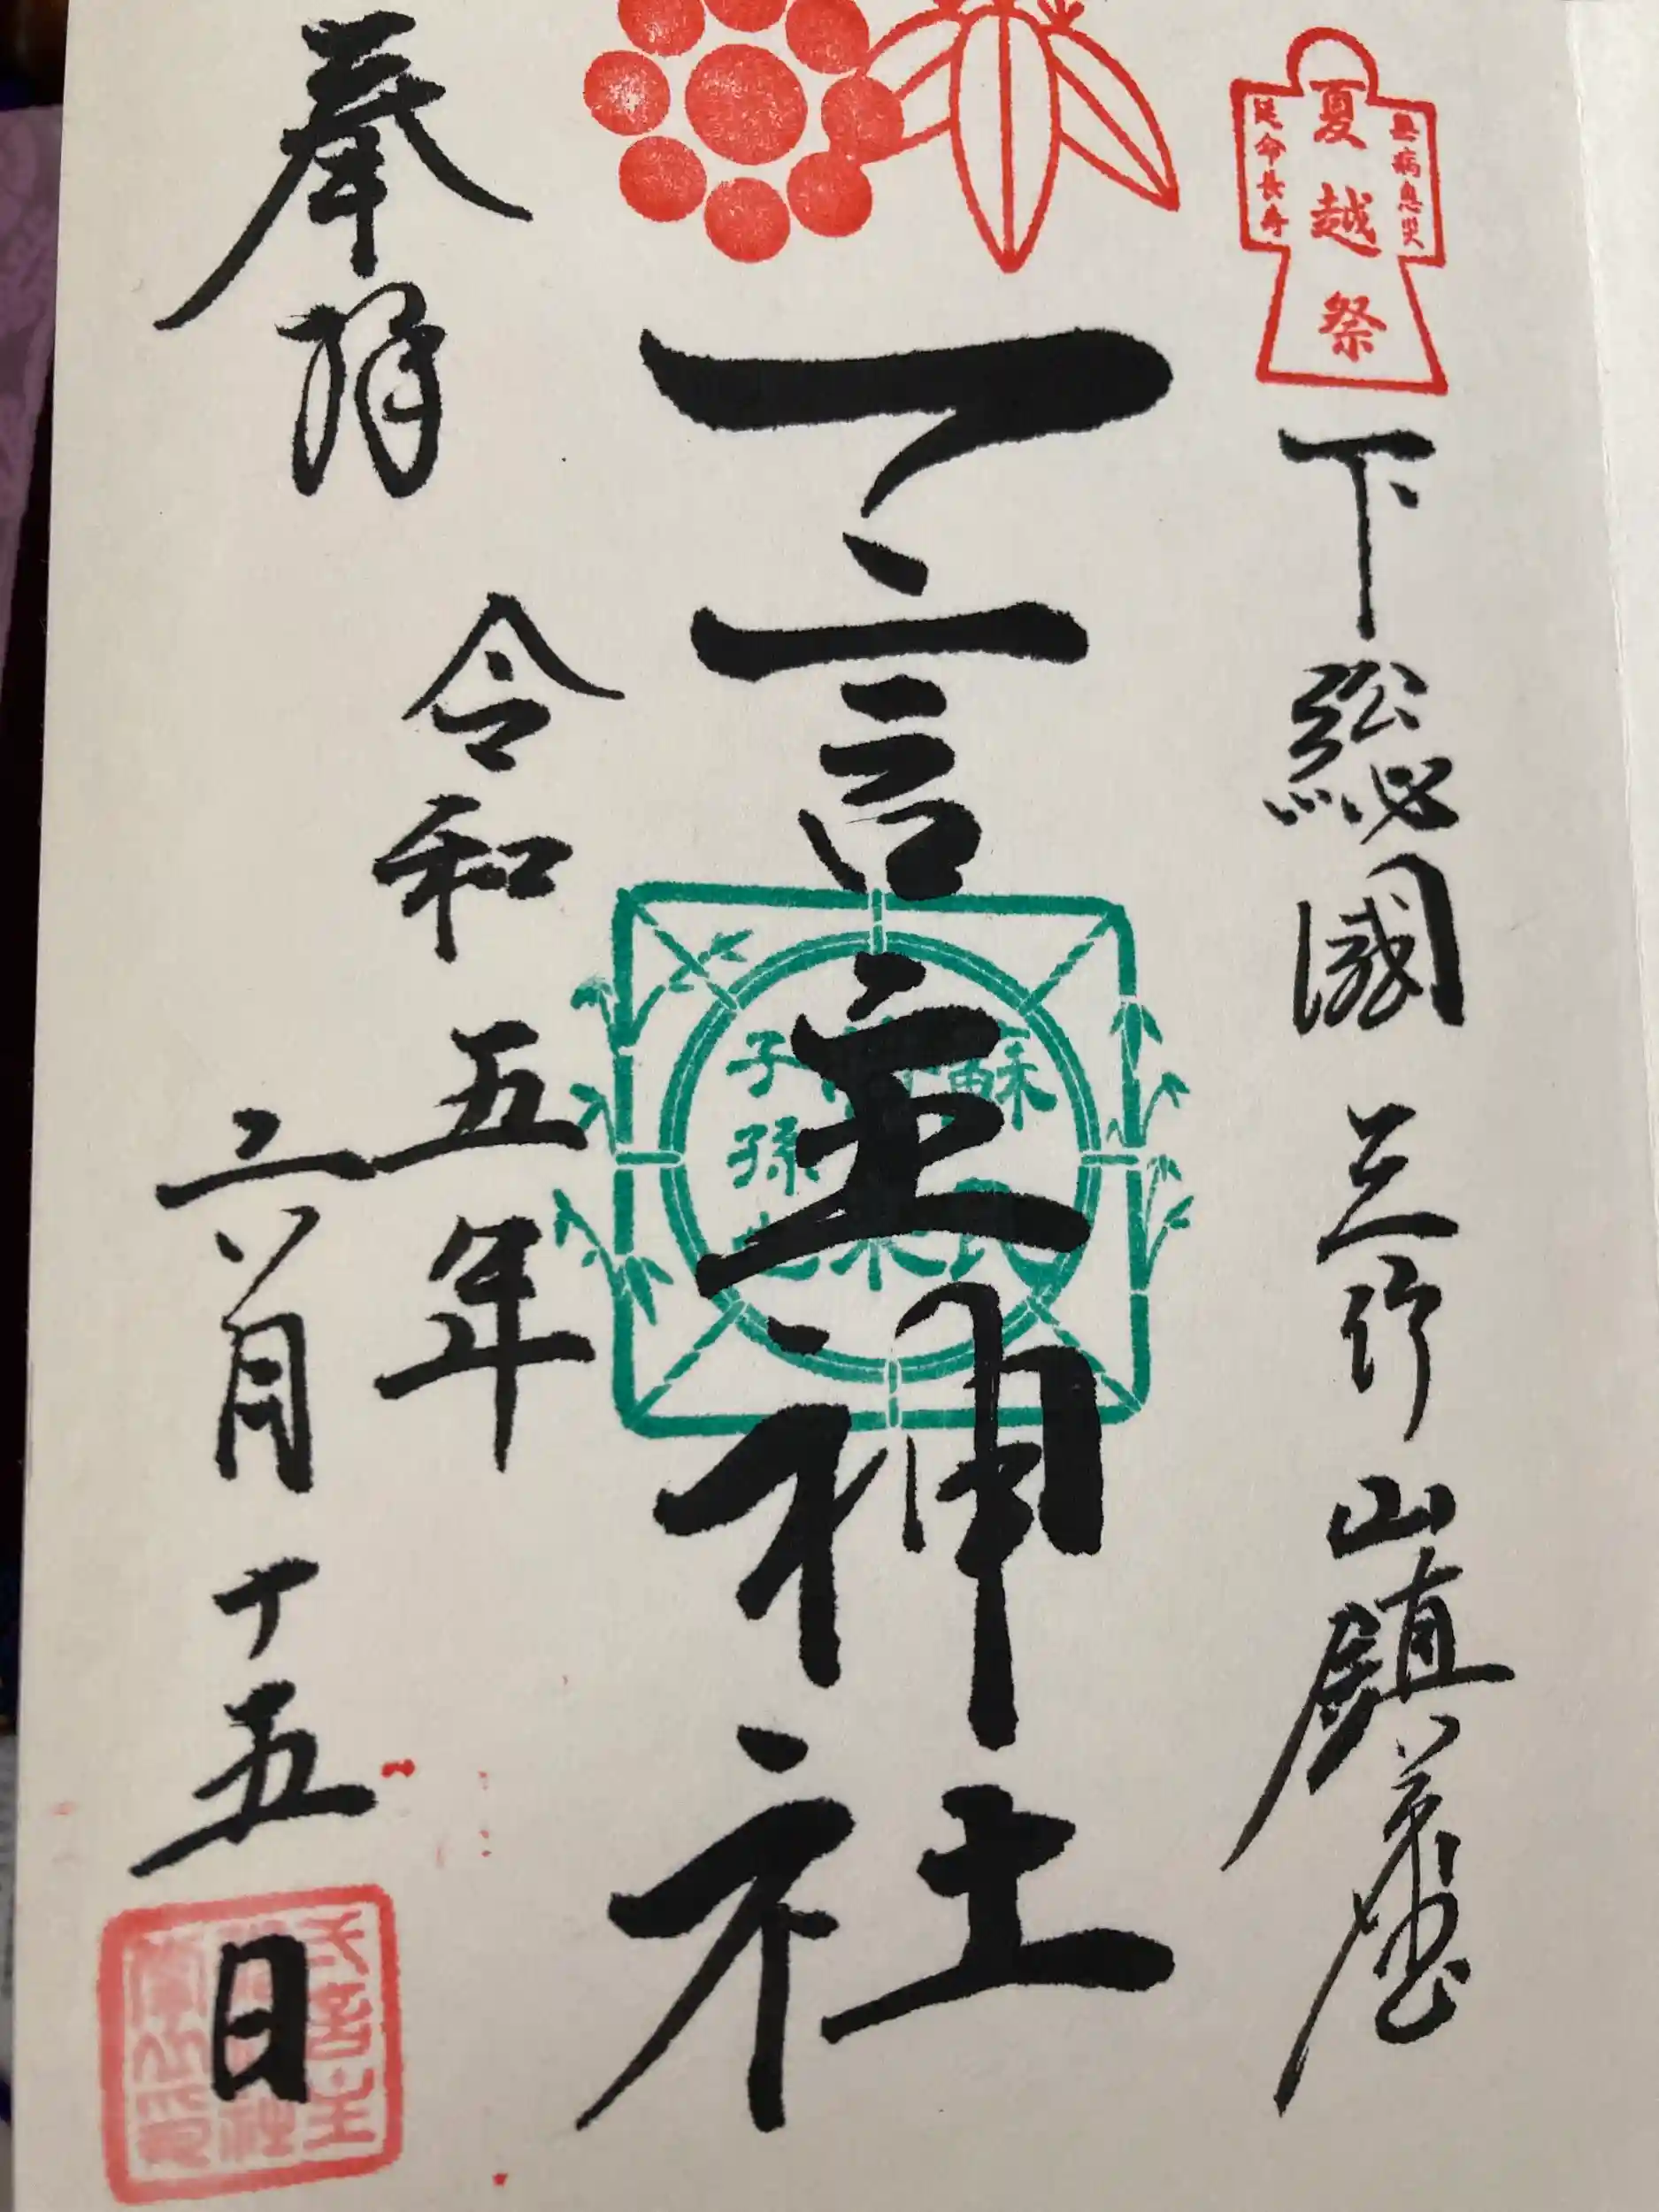 無病息災
夏越祭
延命長寿
下総國三竹山鎮座
一言主神社
蘇民
子孫也
奉拝
令和五年
六月十五日